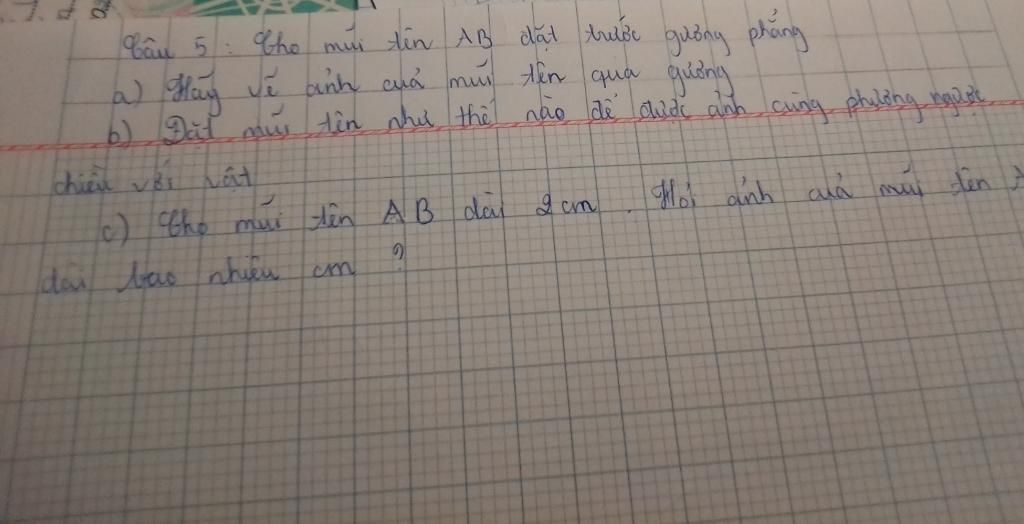 Câu 5: Cho mũi tên AB đặt trước gương phẳng
a) Hãy vẽ ảnh của mũi tên qua gương
b) Đặt mũi tên như thế nào để được ảnh cùng phương ngược
chiều với vật
c) Cho mũi tên AB dài 2cm. Hỏi ảnh của mũi tên A
dài bao nhiêu cm?